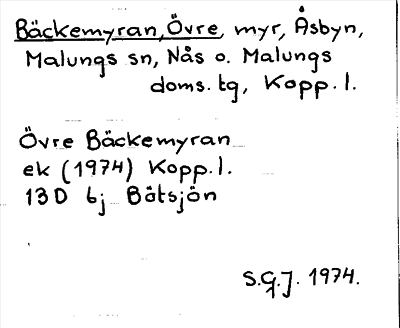 Bäckemyran, Övre, myr, Åsbyn,
Malungs sn, Nås o. Malungs
doms. tg, Kopp. l.
Övre Bäckemyran
ek (1974) Kopp. l.
13D 6j Båtsjön
S.G.J. 1974.